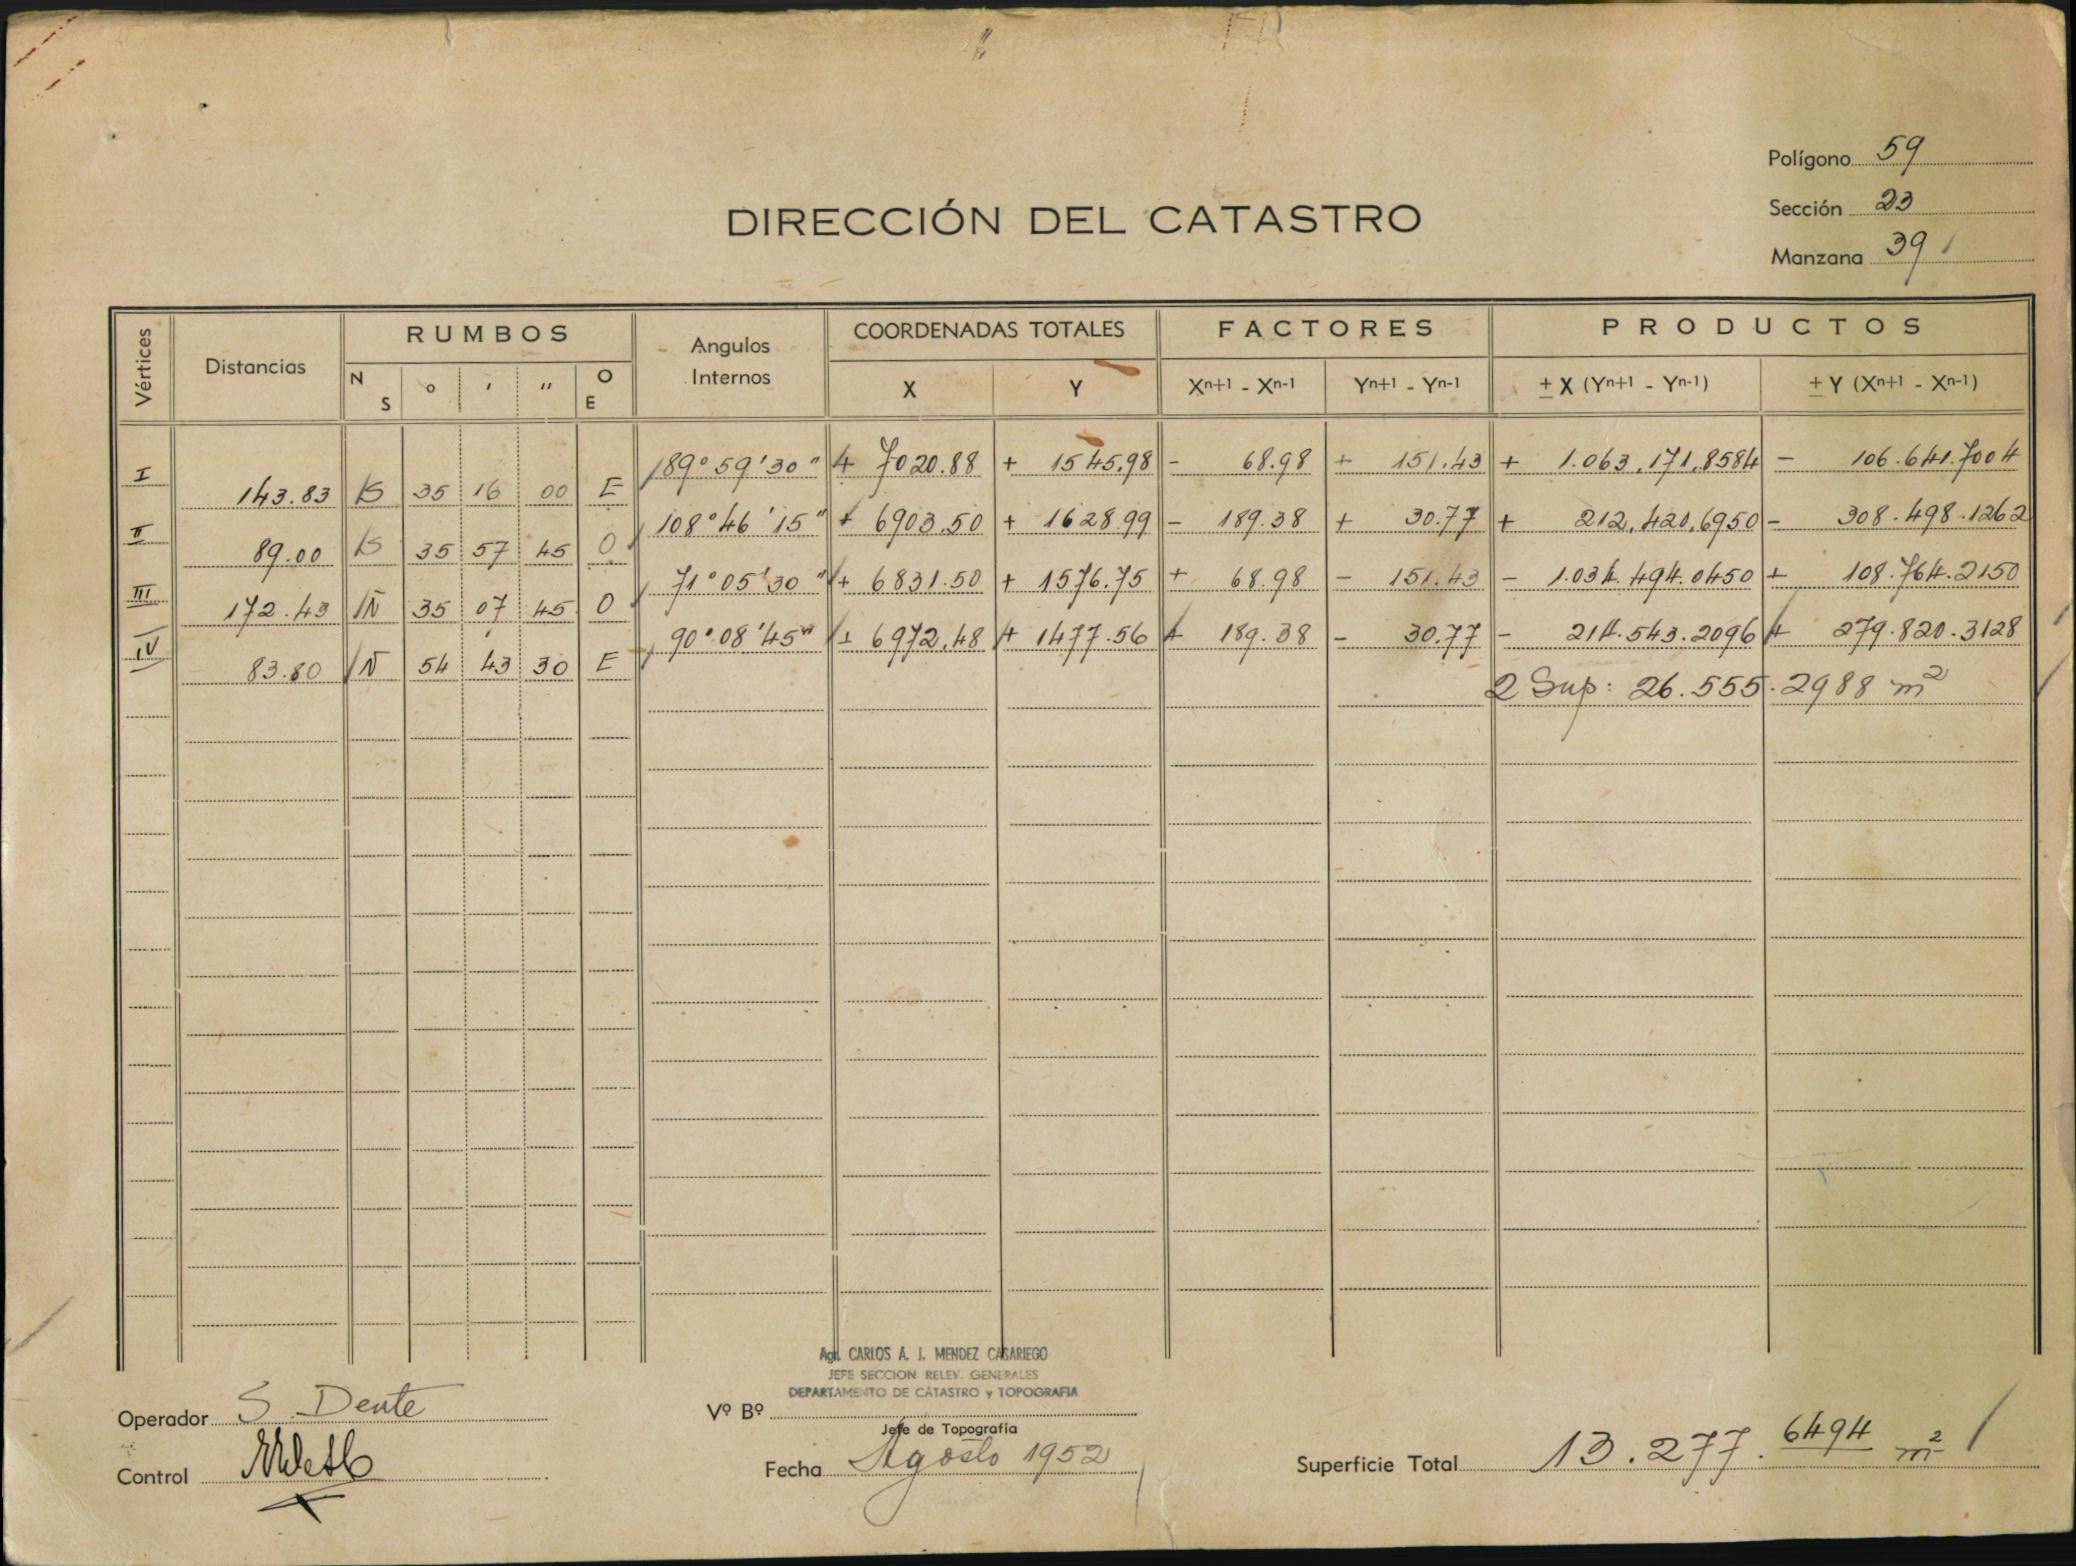 Polígono 59
Sección 23
Manzana 39
DIRECCIÓN DEL CATASTRO
Vértices Distancias RUMBOS Angulos Internos COORDENADAS TOTALES FACTORES PRODUCTOS
N S o ' '' O E X Y Xn+1 - Xn-1 Yn+1 - Yn-1 ± X (Yn+1 - Yn-1) ± Y (Xn+1 - Xn-1)
89° 59' 30" + 7020.88 + 1545.98 - 68.98 + 151.43 + 1.063.171,8584 - 106.641.7004
I 143.83 S 35 16 00 E
108° 46' 15" + 6903.50 + 1628.99 - 189.38 + 30.77 + 212.420.6950 - 308.498.1262
II 89.00 S 35 57 45 O
71° 05' 30" + 6831.50 + 1576.75 + 68.98 - 151.43 - 1.034.494.0450 + 108.764.2150
III 172.43 N 35 07 45 O
90° 08' 45" + 6972.48 + 1477.56 + 189.38 - 30.77 - 214.543.2096 + 279.820.3128
IV 83.80 N 54 43 30 E
2 Sup: 26.555.2988 m2
Agr. CARLOS A. J. MENDEZ CASARIEGO
JEFE SECCION RELEV. GENERALES
DEPARTAMENTO DE CATASTRO y TOPOGRAFIA
Operador S. Dente
Vº Bº
Jefe de Topografía
Control
Fecha Agosto 1952
Superficie Total 13.277.6494 m2